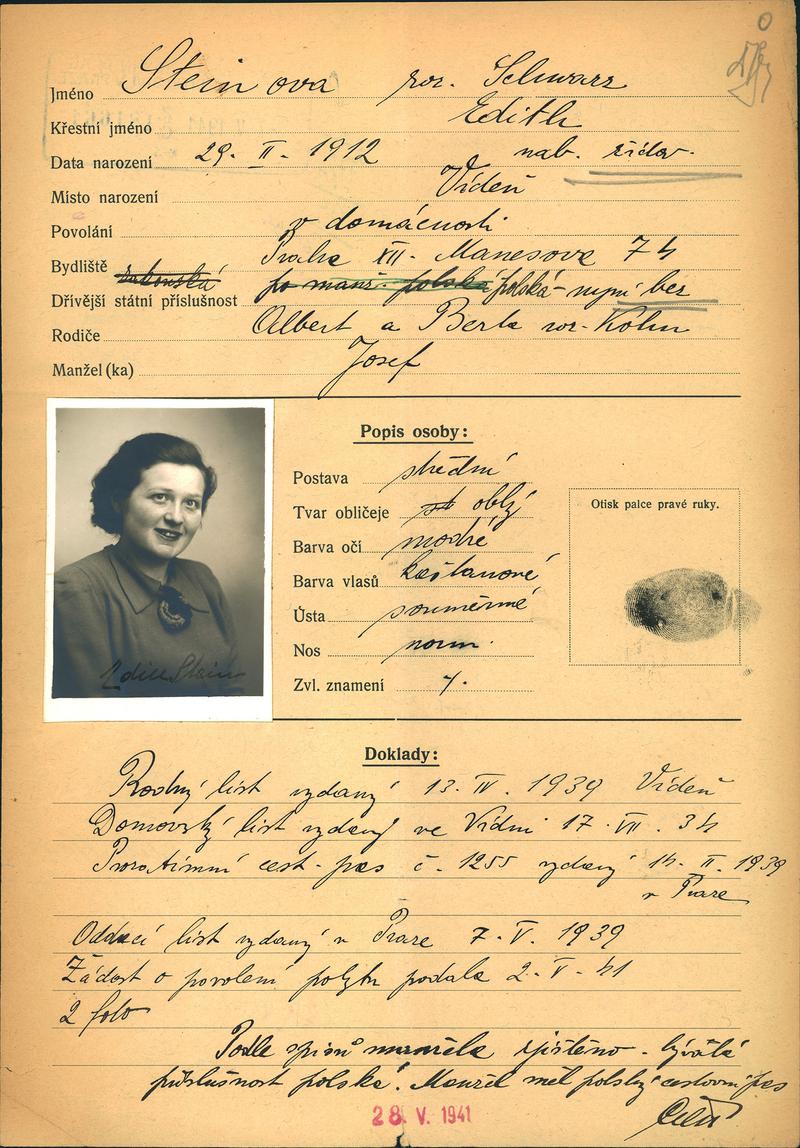 Jméno Steinova roz. Schwarz
Křestní jméno Edith
Data narození 29. II. 1912 nab. židov.
Místo narození Vídeň
Povolání v domácnosti
Bydliště Praha XII. Manesova 74
rakouská
Dřívější státní příslušnost po manž. polská polská - nyní bez
Rodiče Albert a Berta roz. Kohn
Manžel (ka) Josef
Popis osoby:
Postava střední
Tvar obličeje oblý
Barva očí modré
Barva vlasů kaštanové
Ústa souměrné
Nos norm.
Zvl. znamení
Otisk palce pravé ruky.
Edith Stein
Doklady:
Rodný list vydaný 13. IV. 1939 Vídeň
Domovský list vydaný ve Vídni 17. VII. 34
Prozatimní cest. pas č. 1255 vydaný 14. II. 1939
v Praze
Oddací list vydaný v Praze 7. V. 1939
Žádost o povolení pobytu podala 2. V. 41
2 foto
Podle spisů manžela zjištěno - bývalá
příslušnost polská. Manžel měl polský cestovní pas
28. V. 1941